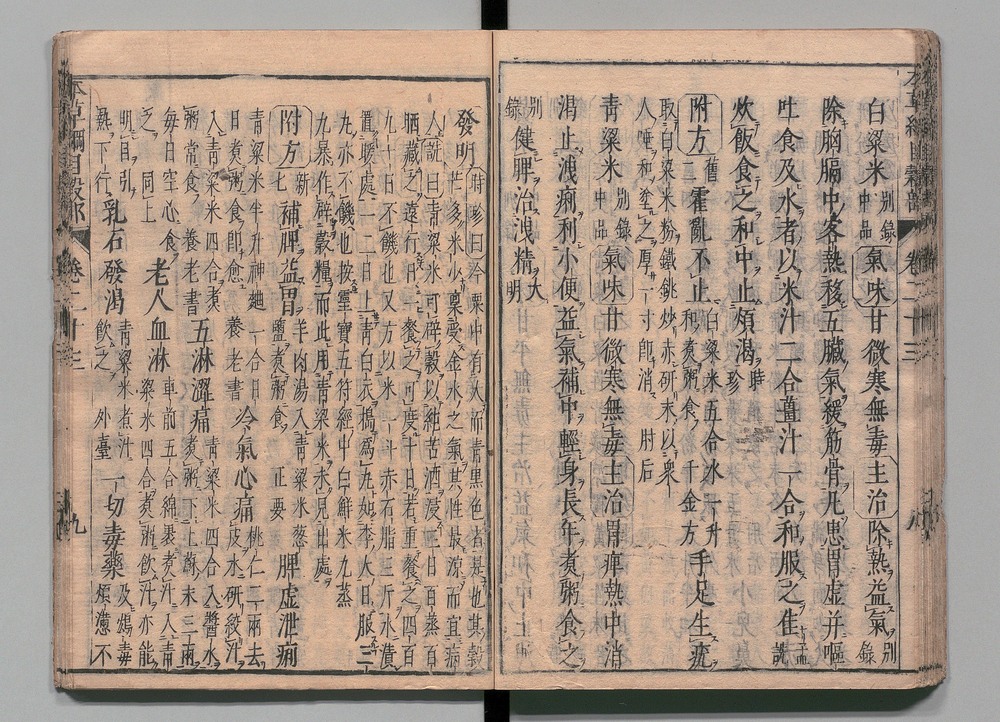 白粱米別錄中品氣味甘微寒無毒主治除熱益氣別錄
除胸膈中客熱移五臟氣緩筋骨凡患胃虛并嘔
吐食及水者以米汁二合薑汁一合和服之佳孟詵
炊飯食之和中止煩渴時珍
附方舊二霍亂不止白粱米五合水一升和煮粥食千金方手足生疣
取白粱米粉鐵銚炒赤研末以衆人唾和塗之厚一寸即消肘后
青粱米別錄中品氣味甘微寒無毒主治胃痺熱中消
渴止洩痢利小便益氣補中輕身長年煮粥食之
別錄健脾治洩精大明
發明時珍曰今粟中有大而青黑色者是也其穀芒多米少稟受金水之氣其性最涼而宜病
人詵曰青粱米可辟穀以純苦酒浸三日百蒸百晒藏之遠行日一餐之可度十日若重餐之四百
九十日不饑也又方以米一斗赤石脂三斤水漬置暖處一二日上青白衣搗為丸如李大日服三
九亦不饑也按靈寶五符經中白鮮米九蒸九暴作辟穀糧而此用青粱米未見出處
附方新七補脾益胃羊肉湯入青粱米葱鹽煮粥食正要脾虛泄痢
青粱米半升神麯一合日日煮粥食即愈養老書冷氣心痛桃仁二兩去皮水研絞汁
入青粱米四合煮粥常食養老書五淋澀痛青粱米四合入醬水煮粥下土蘇末三兩
每日空心食之同上老人血淋車前五合綿裹煮汁入青粱米四合煮粥飲汁亦能
明目引熱下行乳石發渴青粱米煮汁飲之外臺一切毒藥及鴆毒煩懣不
本草綱目穀部
卷二十三
八
本草綱目穀部
卷二十三
九